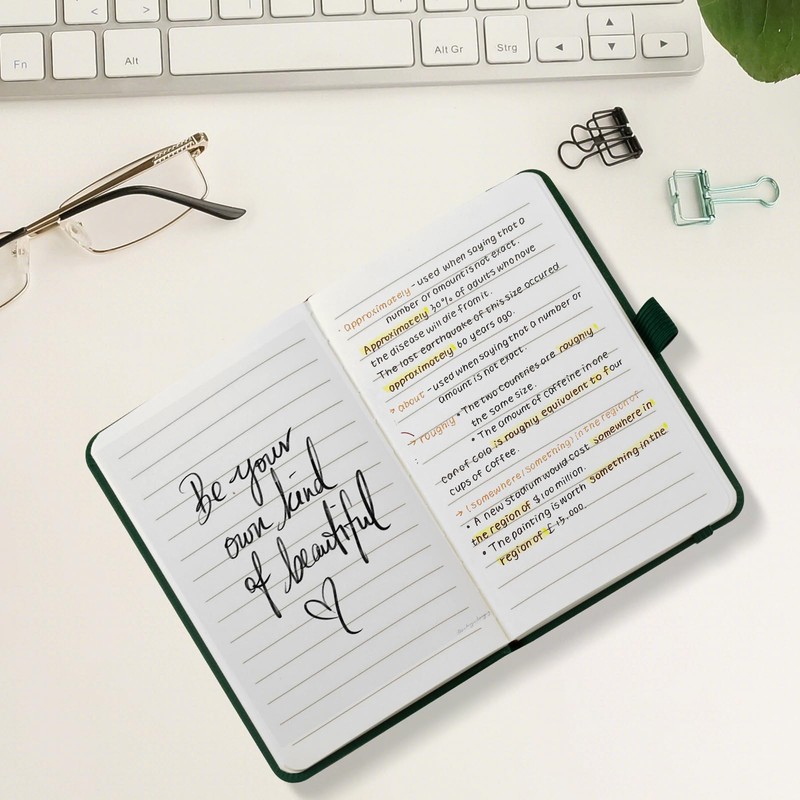 Fn
Alt
Alt Gr
Strg
Be your
own kind
of beautiful
Approximately - used when saying that a
number or amount is not exact.
Approximately 30% of adults who have
the disease will die from it.
The last earthquake of this size occured
approximately 60 years ago.
→ about - used when saying that a number or
amount is not exact.
→ roughly • The two countries are roughly
the same size.
• The amount of caffeine in one
can of cola is roughly equivalent to four
cups of coffee.
→ (somewhere/something) in the region of
• A new stadium would cost somewhere in
the region of $100 million.
• The painting is worth something in the
region of £15.000